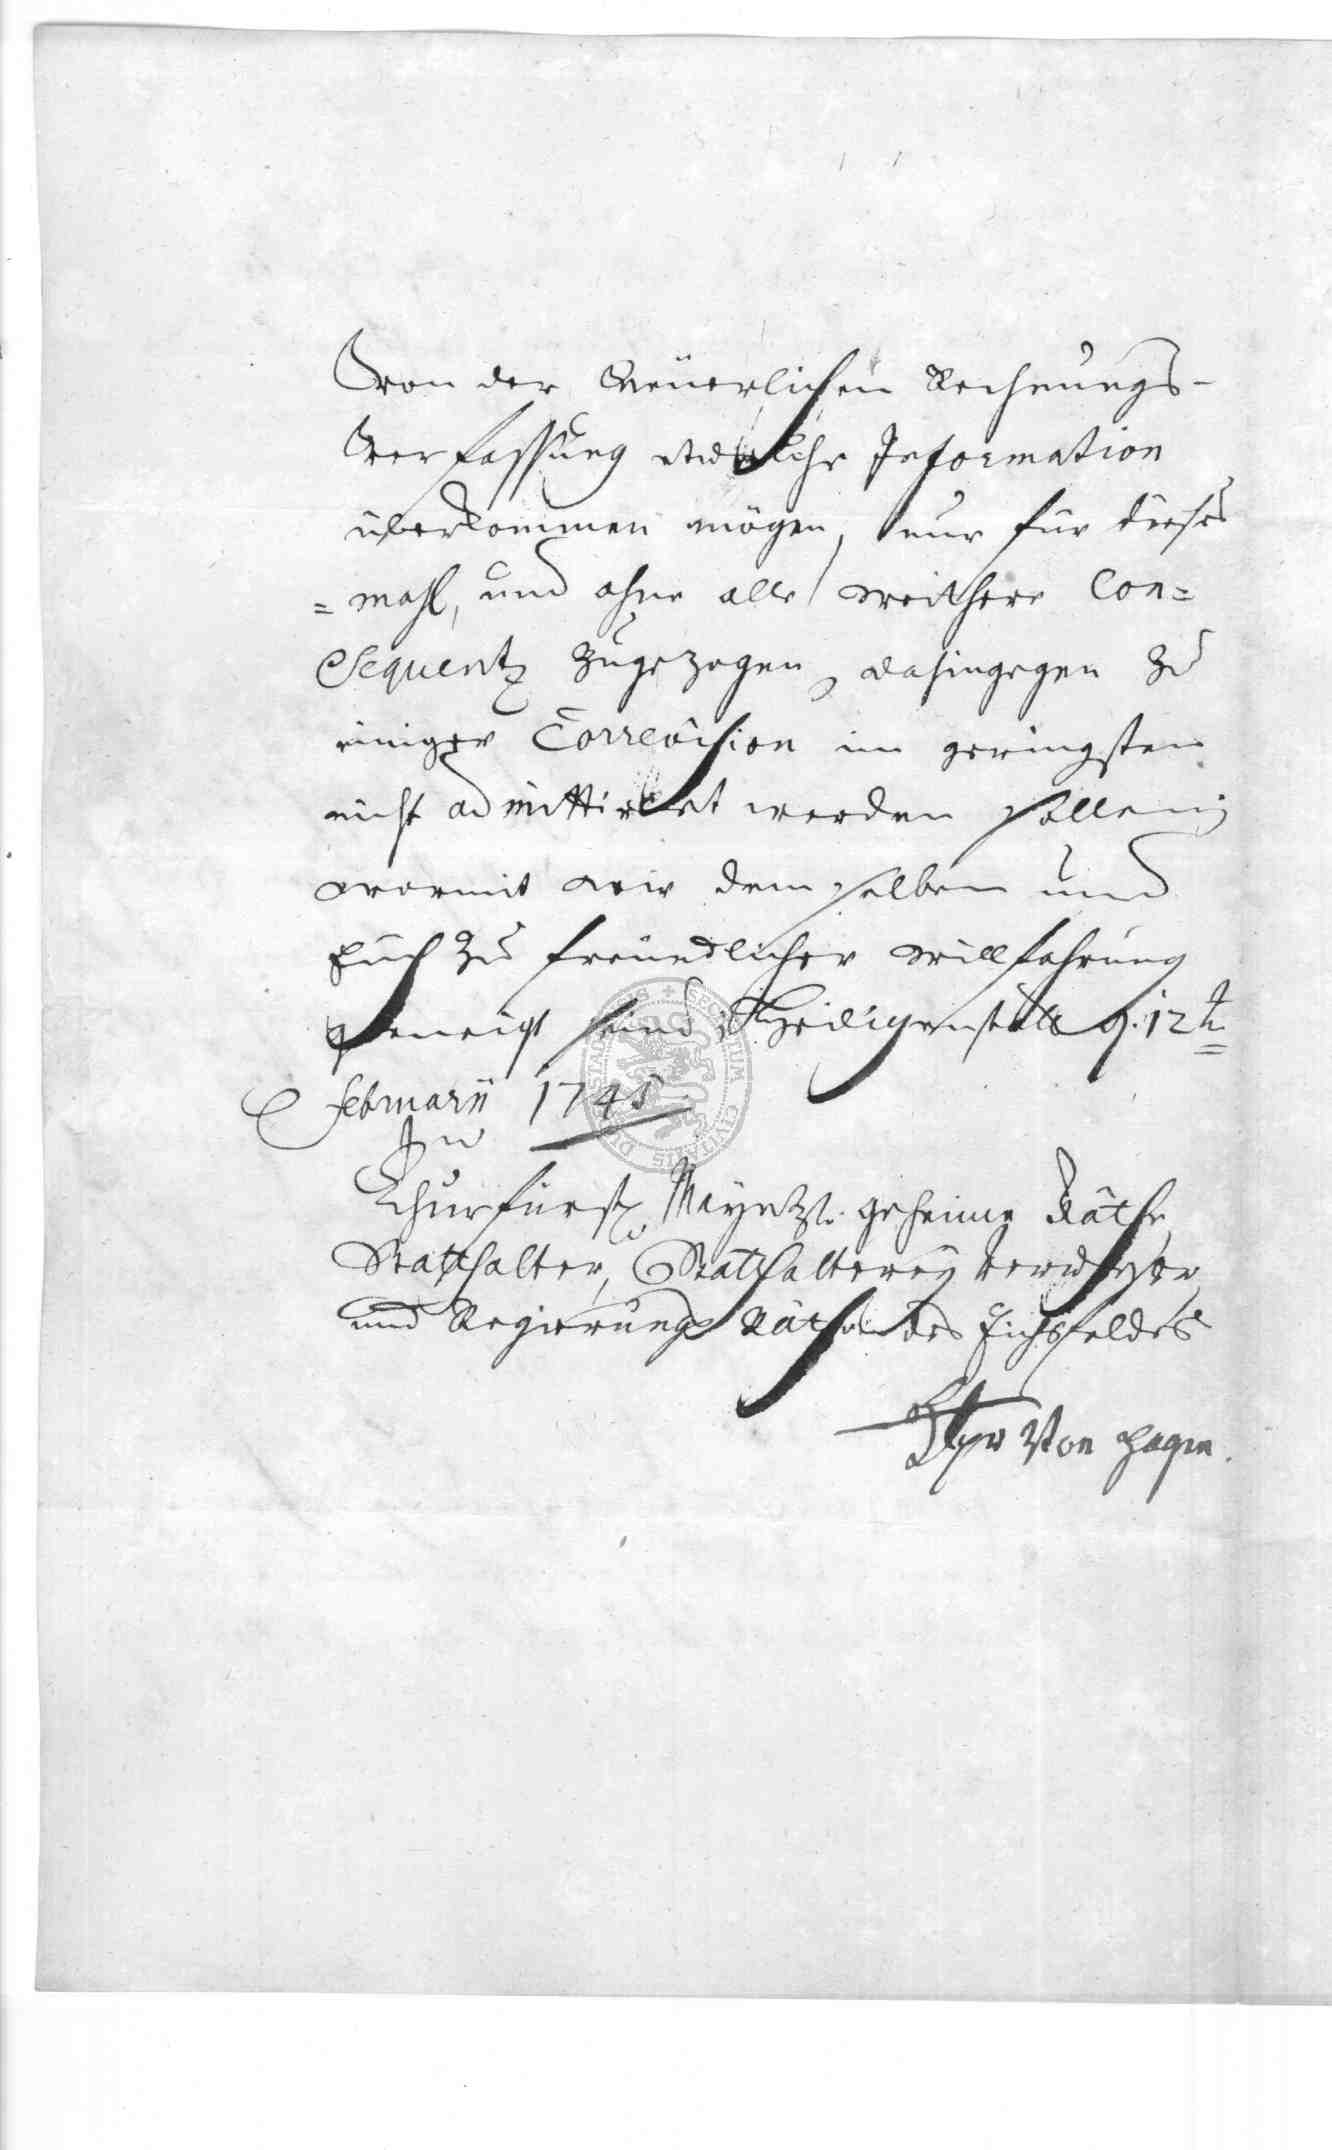 Von der Steuerlichen Rechnungs-
Verfassung etwelche Information
überkommen mögen, nur für dieses
=mahl, und ohne alle weithere Con=
Sequentz zugezogen, dahingegen zu
einiger Correvision im geringsten
nicht admittiret werden sollen;
wormit wir demselben und
Euch zu freundlicher willfahrung
geneigt seind Heiligenstatt d. 12t
Februarii 1745
Churfürstl. Mayntzl. geheime Räthe
Statthalter, Statthalterey Verweser
und Regierungs Räthe des Eichsfeldes
Von Hagen.
SECRETUM CIVITATIS